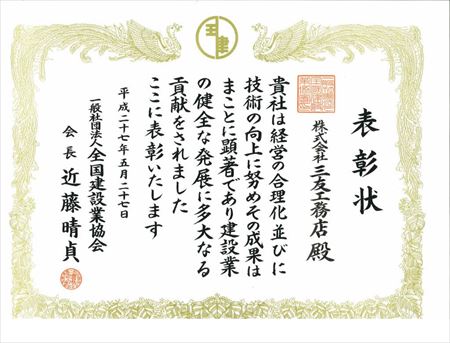 全建
表彰状
株式会社三友工務店 殿
貴社は経営の合理化並びに
技術の向上に努めその成果は
まことに顕著であり建設業
の健全な発展に多大なる
貢献をされました
ここに表彰いたします
平成二十七年五月二十七日
一般社団法人全国建設業協会
会長 近藤晴貞